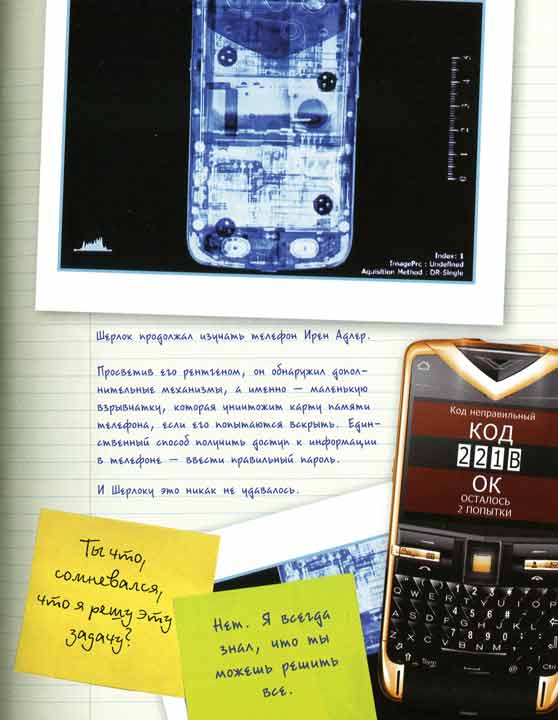 5
4
3
2
1
0
Index: 1
ImagePrc : Undefined
Aquisition Method : DR-Single
Шерлок продолжал изучать телефон Ирен Адлер.
Просветив его рентгеном, он обнаружил допол-
нительные механизмы, а именно — маленькую
взрывчатку, которая уничтожит карту памяти
телефона, если его попытаются вскрыть. Един-
ственный способ получить доступ к информации
в телефоне — ввести правильный пароль.
И Шерлоку это никак не удавалось.
Код неправильный
КОД
221B
ОК
ОСТАЛОСЬ
2 ПОПЫТКИ
Ты что,
сомневался,
что я решу эту
задачу?
Нет. Я всегда
знал, что ты
можешь решить
все.